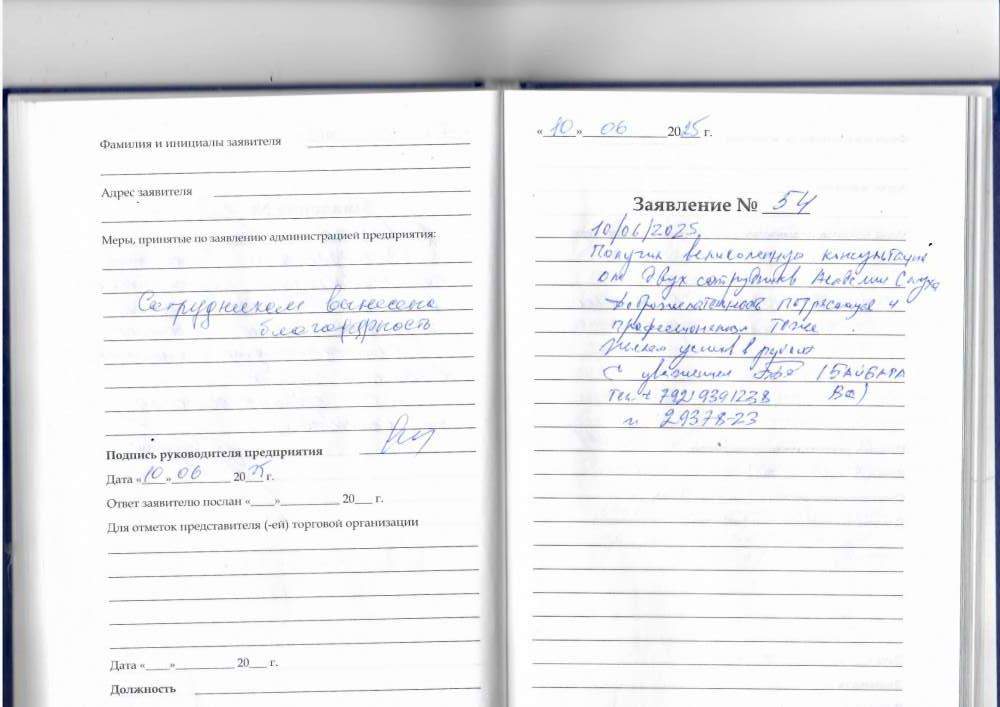 Фамилия и инициалы заявителя
Адрес заявителя
Меры, принятые по заявлению администрацией предприятия:
Сотрудникам вынесена
благодарность
Подпись руководителя предприятия
Дата «10» 06 2025 г.
Ответ заявителю послан «___»__________ 20___ г.
Для отметок представителя (-ей) торговой организации
Дата «____»__________ 20___ г.
Должность
«10» 06 2025 г.
Заявление № 54
10/06/2025.
Получил великолепную консультацию
от двух сотрудников Академии Слуха
Доброжелательность потрясающая и
профессионализм тоже.
Желаю успехов в работе
С уважением (БАЙБАРА
ВФ)
Тел. + 79219391238
29378-23